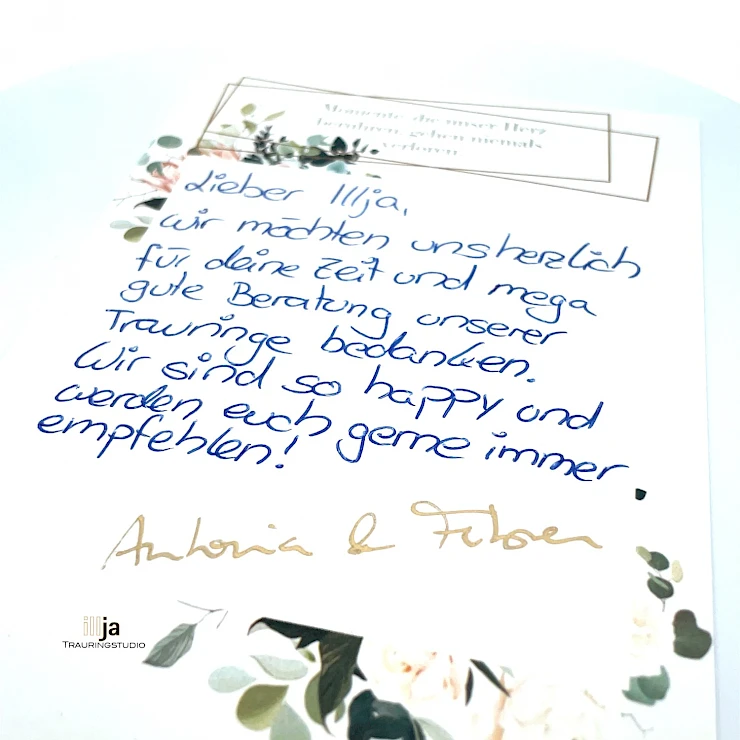 Momente, die unser Herz
berühren, gehen niemals
verloren
Lieber Illja,
wir möchten uns herzlich
für deine Zeit und mega
gute Beratung unserer
Trauringe bedanken.
Wir sind so happy und
werden euch gerne immer
empfehlen!
Antonia &
illja
TRAURINGSTUDIO